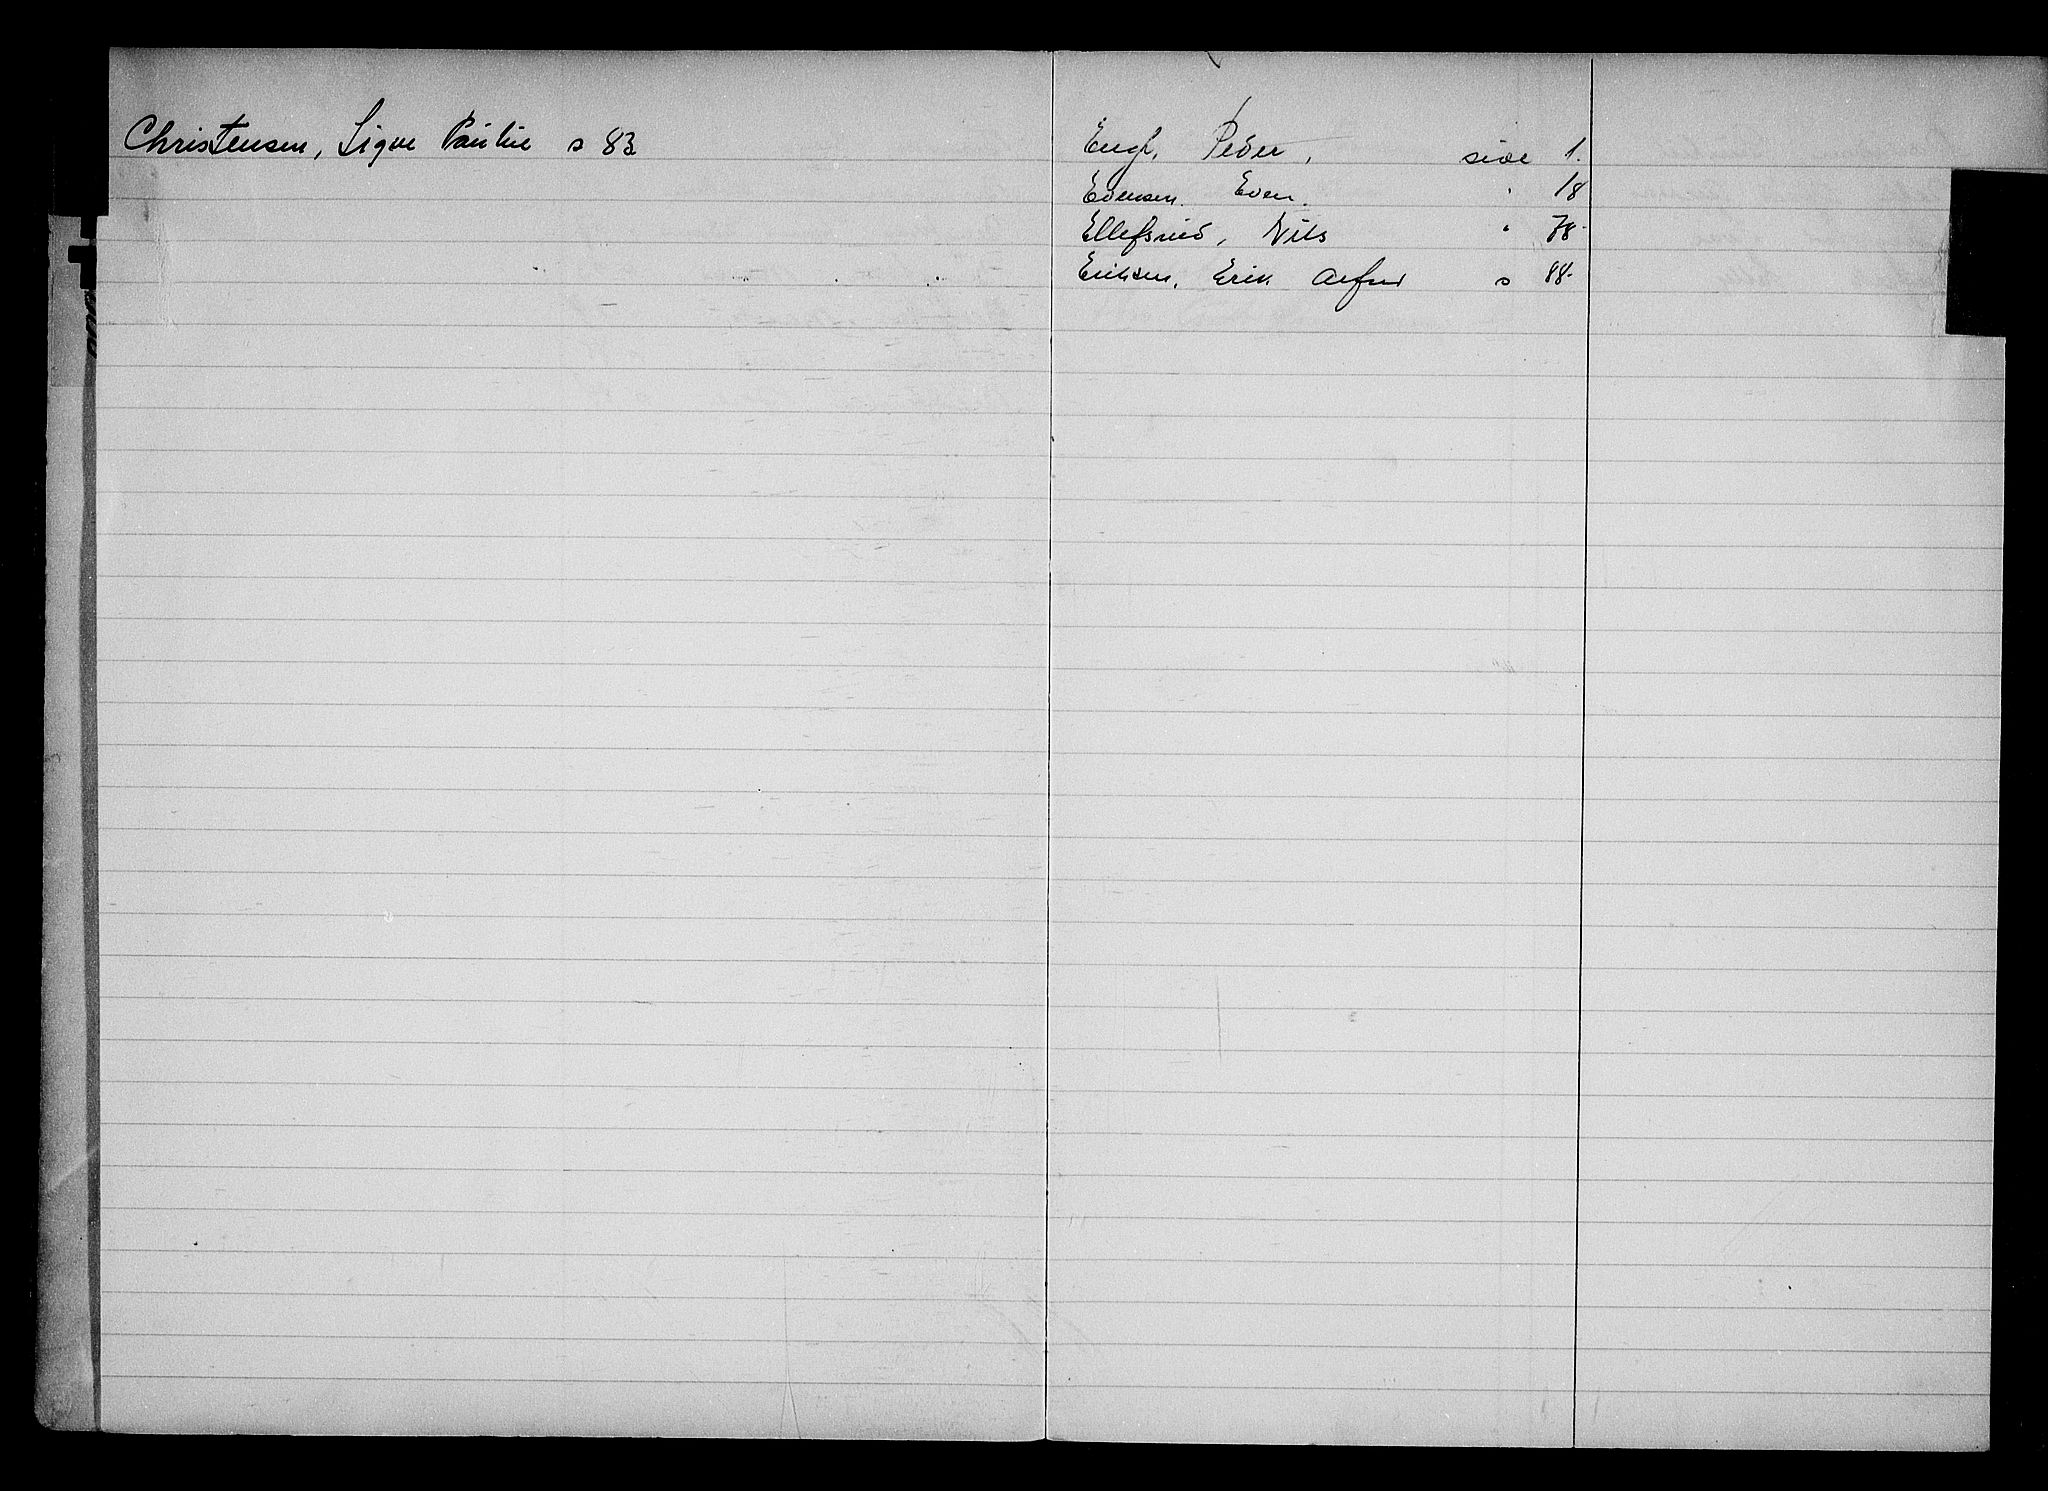 Christensen, Signe Pauline s 83
Engh, Peder, side 1.
Evensen. Even. " 18
Ellefsrud, Nils " 78
Eriksen, Erik Alfred s 88